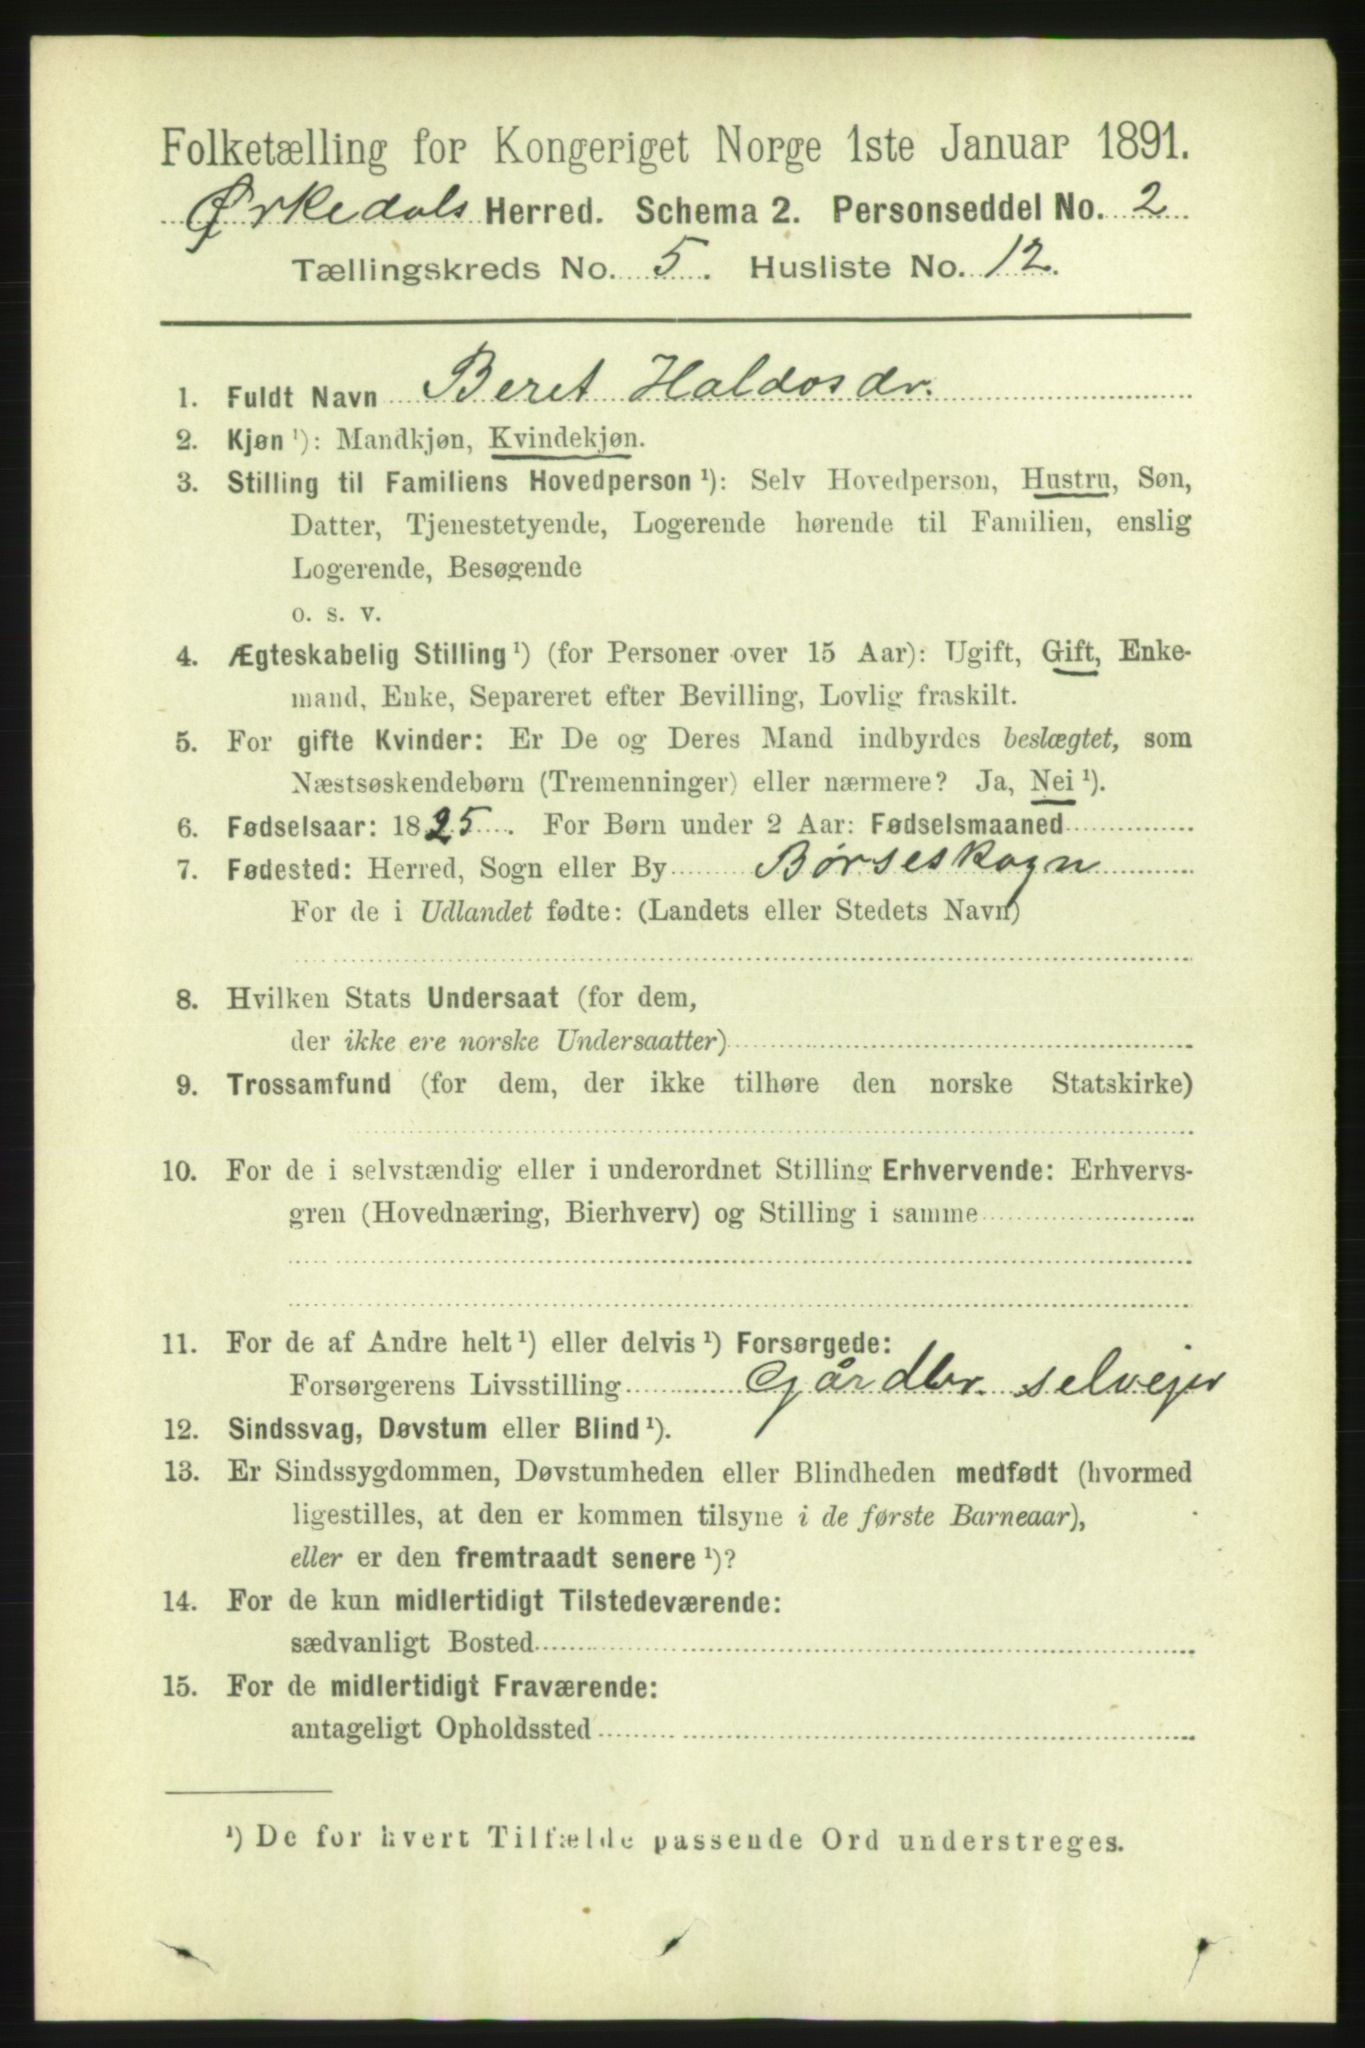 Folketælling for Kongeriget Norge 1ste Januar 1891.
Ørkedals Herred. Schema 2. Personseddel No. 2
Tællingskreds No. 5. Husliste No. 12.
1. Fuldt Navn Beret Haldosdr.
2. Kjøn ¹): Mandkjøn, Kvindekjøn.
3. Stilling til Familiens Hovedperson ¹): Selv Hovedperson, Hustru, Søn,
Datter, Tjenestetyende, Logerende hørende til Familien, enslig
Logerende, Besøgende
o. s. v.
4. Ægteskabelig Stilling ¹) (for Personer over 15 Aar): Ugift, Gift, Enke-
mand, Enke, Separeret efter Bevilling, Lovlig fraskilt.
5. For gifte Kvinder: Er De og Deres Mand indbyrdes beslægtet, som
Næstsøskendebørn (Tremenninger) eller nærmere? Ja, Nei ¹).
6. Fødselsaar: 1825. For Børn under 2 Aar: Fødselsmaaned
7. Fødested: Herred, Sogn eller By Børseskogn
For de i Udlandet fødte: (Landets eller Stedets Navn)
8. Hvilken Stats Undersaat (for dem,
der ikke ere norske Undersaatter)
9. Trossamfund (for dem, der ikke tilhøre den norske Statskirke)
10. For de i selvstændig eller i underordnet Stilling Erhvervende: Erhvervs-
gren (Hovednæring, Bierhverv) og Stilling i samme
11. For de af Andre helt ¹) eller delvis ¹) Forsørgede:
Forsørgerens Livsstilling Gårdbr. selvejer
12. Sindssvag, Døvstum eller Blind ¹).
13. Er Sindssygdommen, Døvstumheden eller Blindheden medfødt (hvormed
ligestilles, at den er kommen tilsyne i de første Barneaar),
eller er den fremtraadt senere ¹)?
14. For de kun midlertidigt Tilstedeværende:
sædvanligt Bosted
15. For de midlertidigt Fraværende:
antageligt Opholdssted
¹) De for hvert Tilfælde passende Ord understreges.